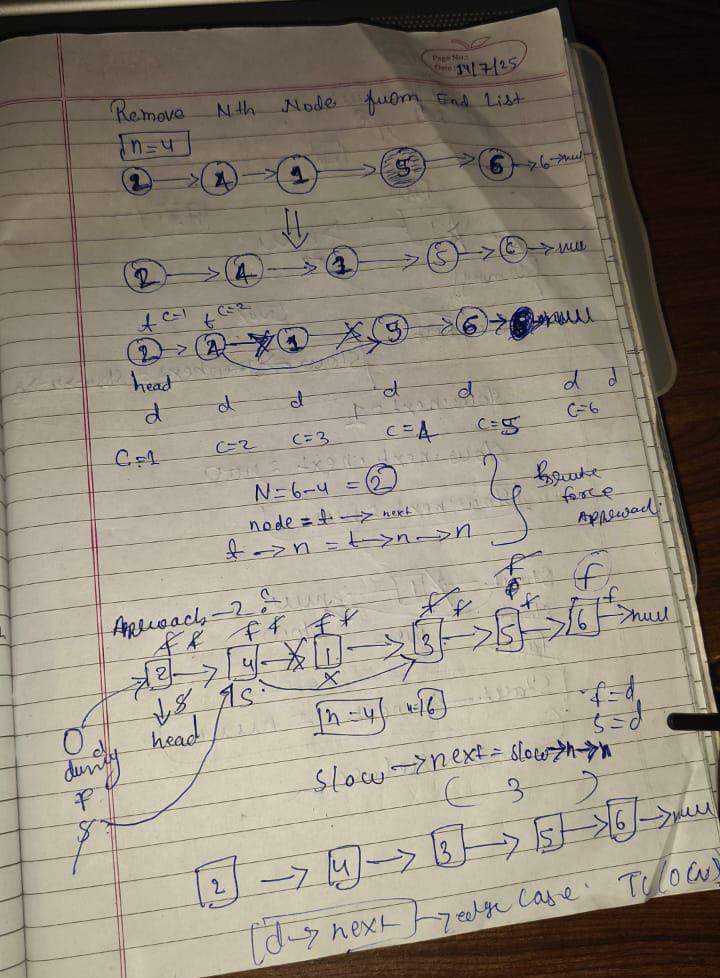 Page No.:
Date 14/7/25
Remove Nth Node from End List
n=4
2 → 4 → 1 → 5 → 6 → 6 → null
2 → 4 → 1 → 5 → 6 → null
t c=1 t c=2
2 → 4 → 1 → 5 → 6 → null
head
d d d d d d d
C=1 C=2 C=3 C=4 C=5 C=6
N=6-4 = 2
node = t → next
t → n = t → n → n
Brute
force
Approach
Approach-2:
f f f f f f f f f f f f
2 → 4 → 1 → 3 → 5 → 6 → null
S S
O d head n=4 n=6 f=d
dummy s=d
f
S
slow → next = slow → n → n
( 3 )
2 → 4 → 3 → 5 → 6 → null
[d → next] → edge case. TC(O(N)